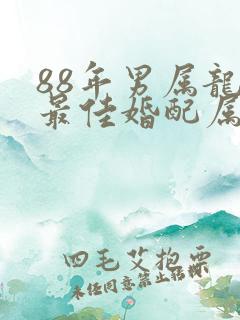 88年男属龍
最佳婚配属
四毛艾抱栗
未任同意禁止转载